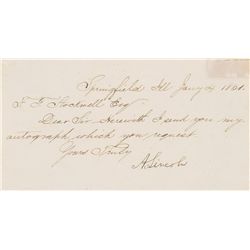 Springfield Ill Jany 4 1861.
F F Hockwell Esq
Dear Sir Herewith I send you my
autograph which you request
Yours Truly
A Lincoln